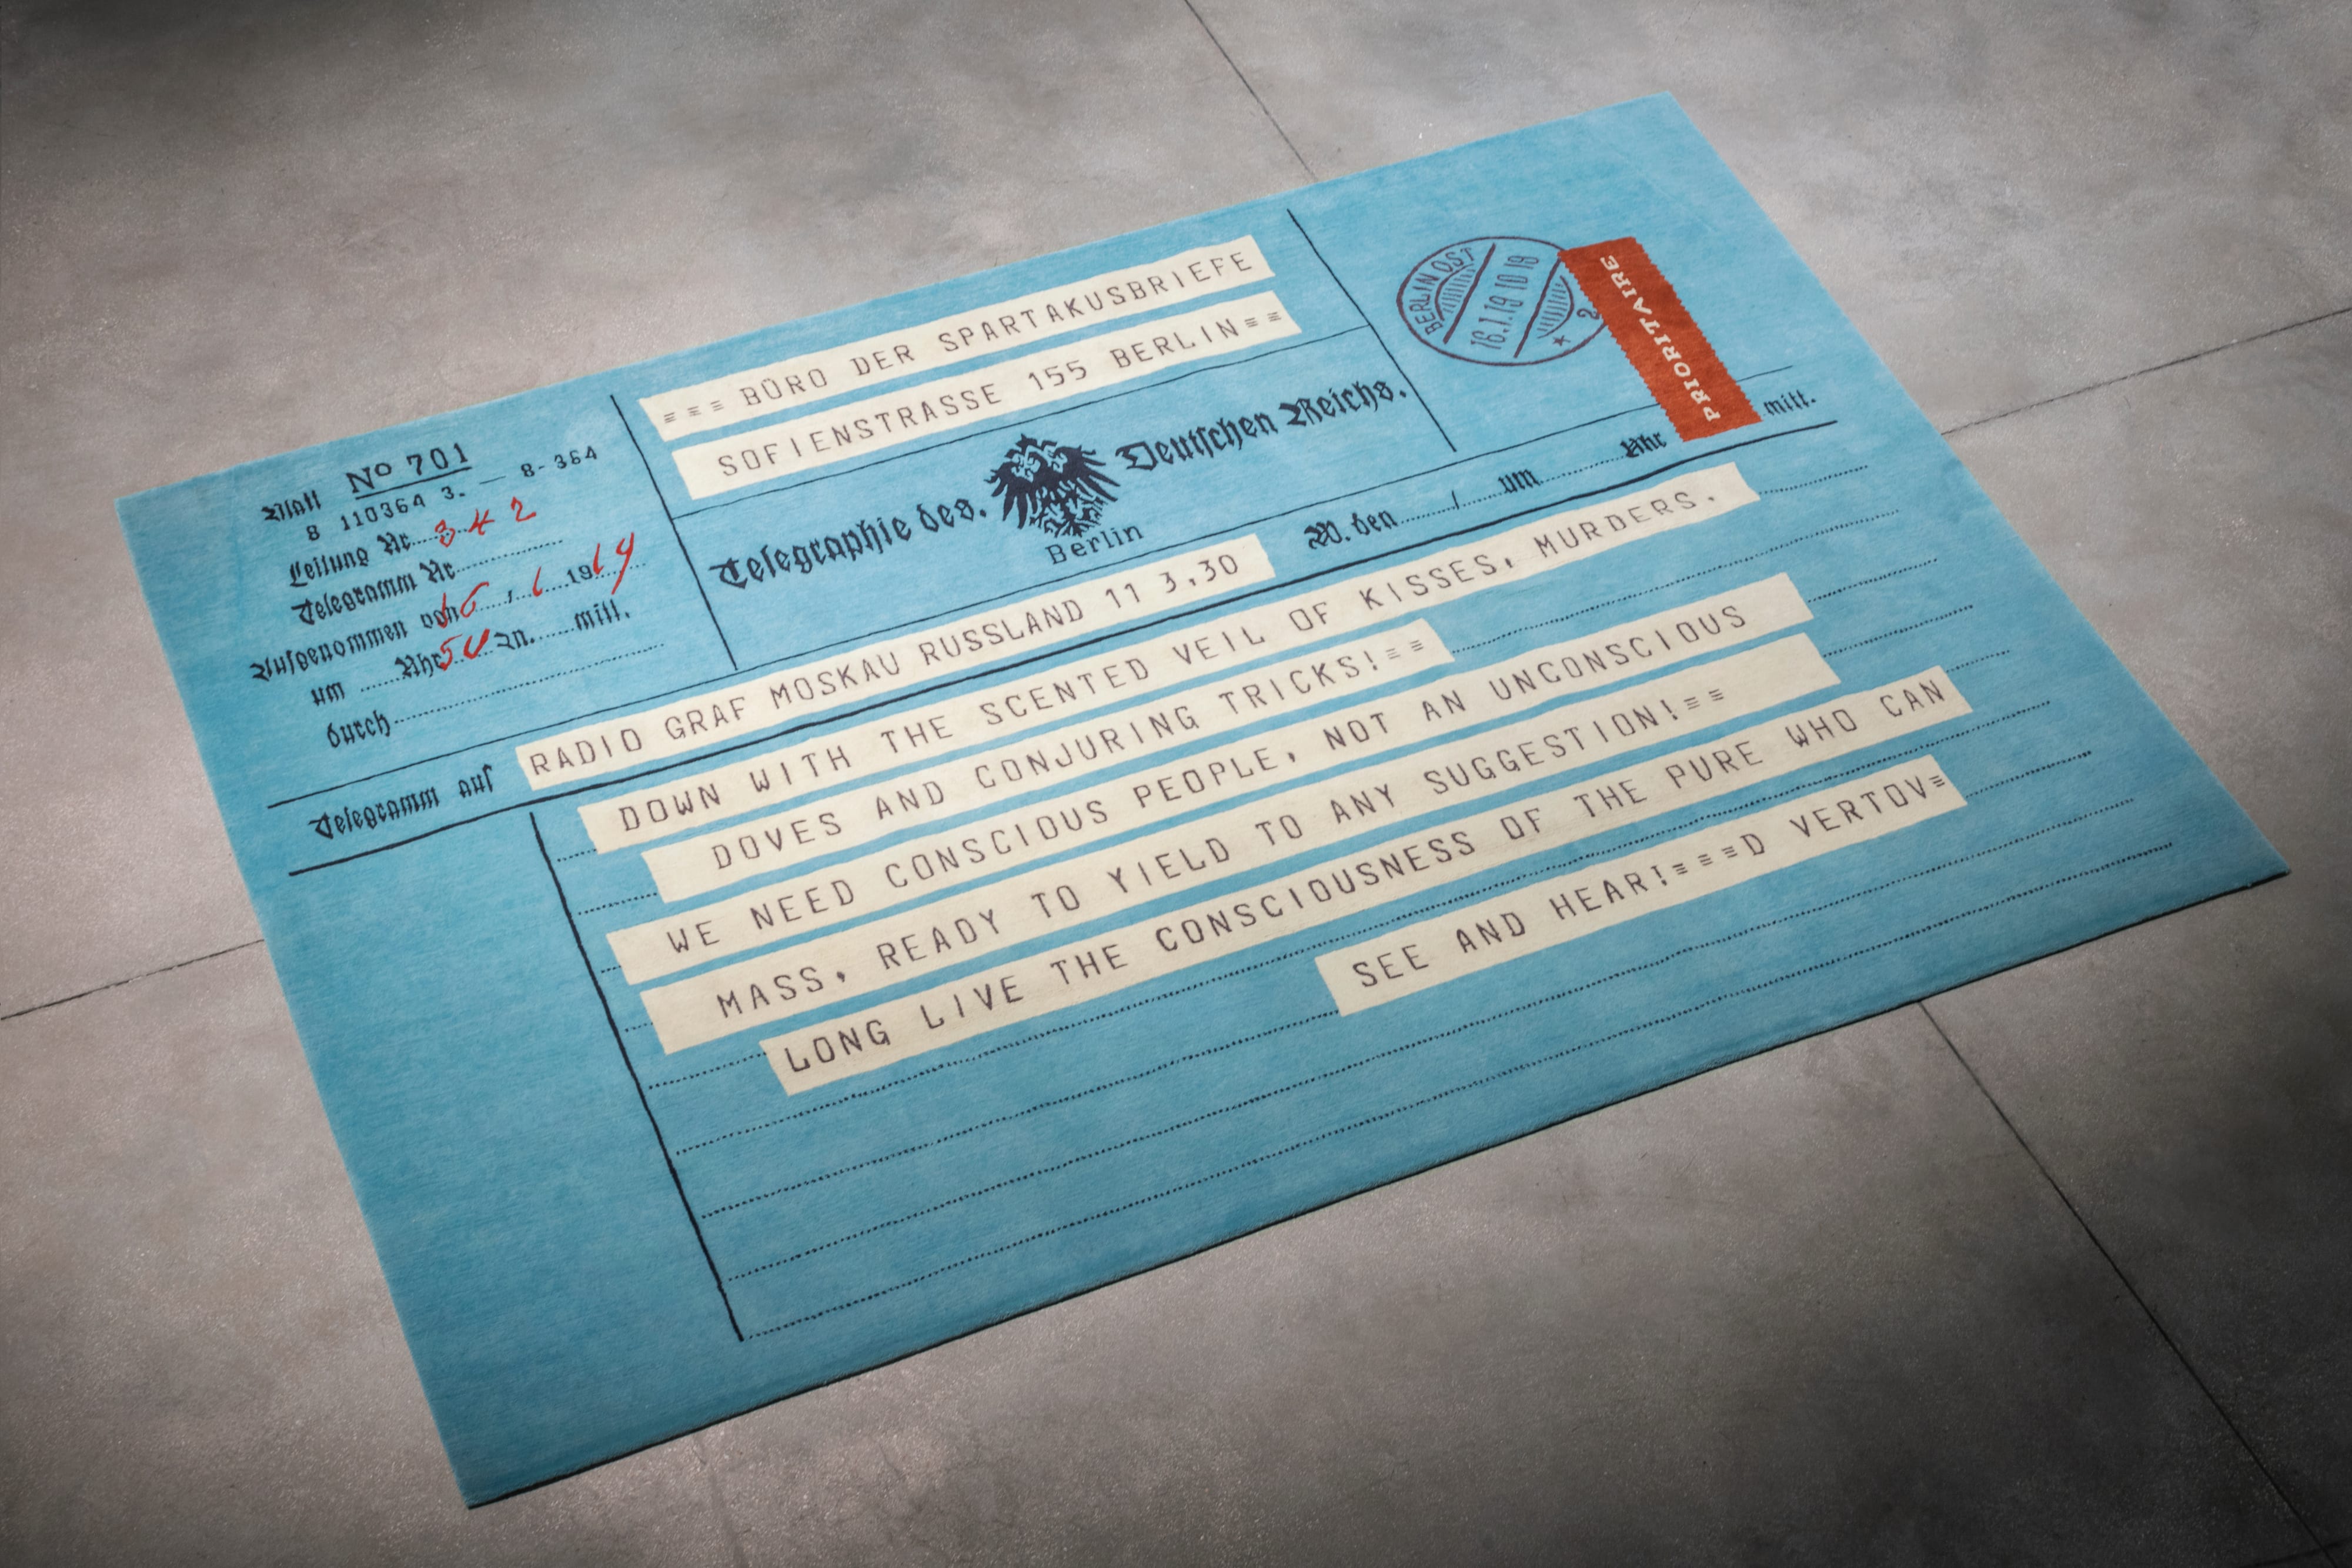 === BÜRO DER SPARTAKUSBRIEFE
SOFIENSTRASSE 155 BERLIN==
Blatt Nº 701
8 110364 3. — 8-364
Leitung Nr. 342
Telegramm Nr.
Aufgenommen von 16 , 1 1919
um Uhr 50 M. mitt.
durch
Telegraphie des. Deutschen Reichs.
Berlin
BERLIN OST
16.1.19 10 19
* 2
PRIORITAIRE
W. den / um Uhr mitt.
Telegramm aus RADIO GRAF MOSKAU RUSSLAND 11 3.30
DOWN WITH THE SCENTED VEIL OF KISSES, MURDERS.
DOVES AND CONJURING TRICKS!==
WE NEED CONSCIOUS PEOPLE, NOT AN UNCONSCIOUS
MASS, READY TO YIELD TO ANY SUGGESTION!==
LONG LIVE THE CONSCIOUSNESS OF THE PURE WHO CAN
SEE AND HEAR!===D VERTOV=